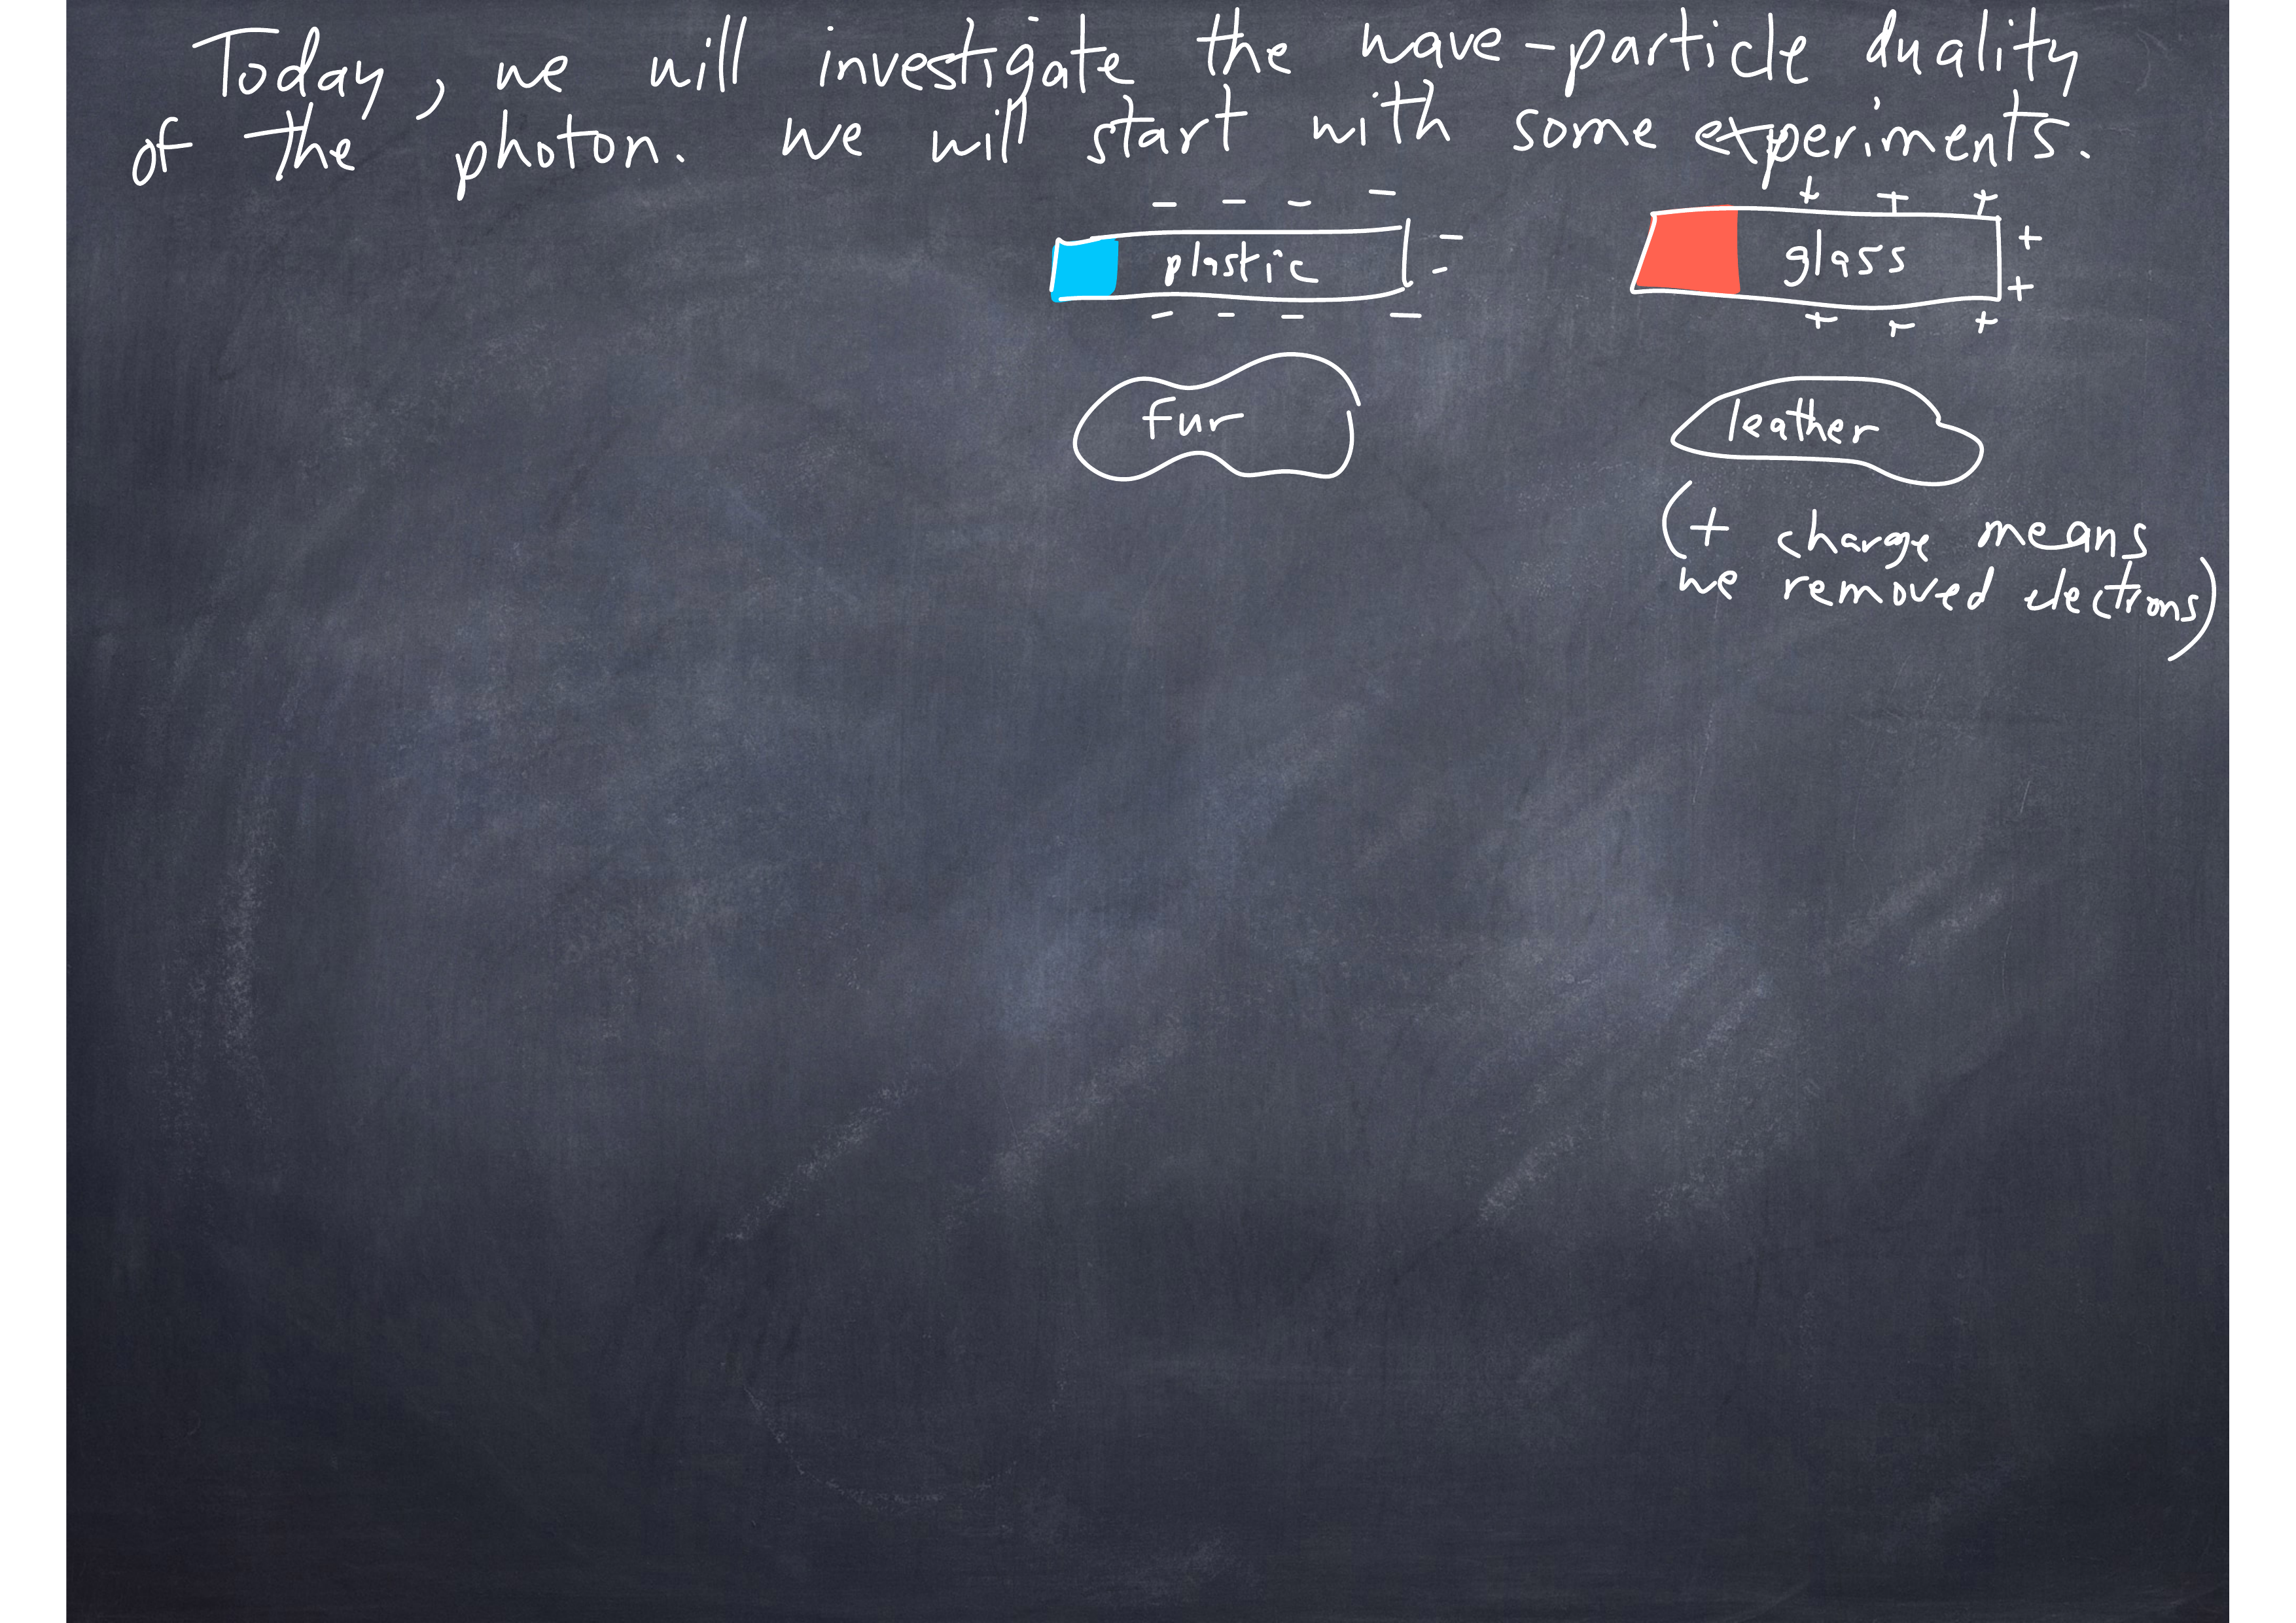 Today, we will investigate the wave-particle duality
of the photon. We will start with some experiments.
- - - -
+ + +
plastic - -
glass + +
- - - -
+ + +
fur
leather
(+ charge means
we removed electrons)